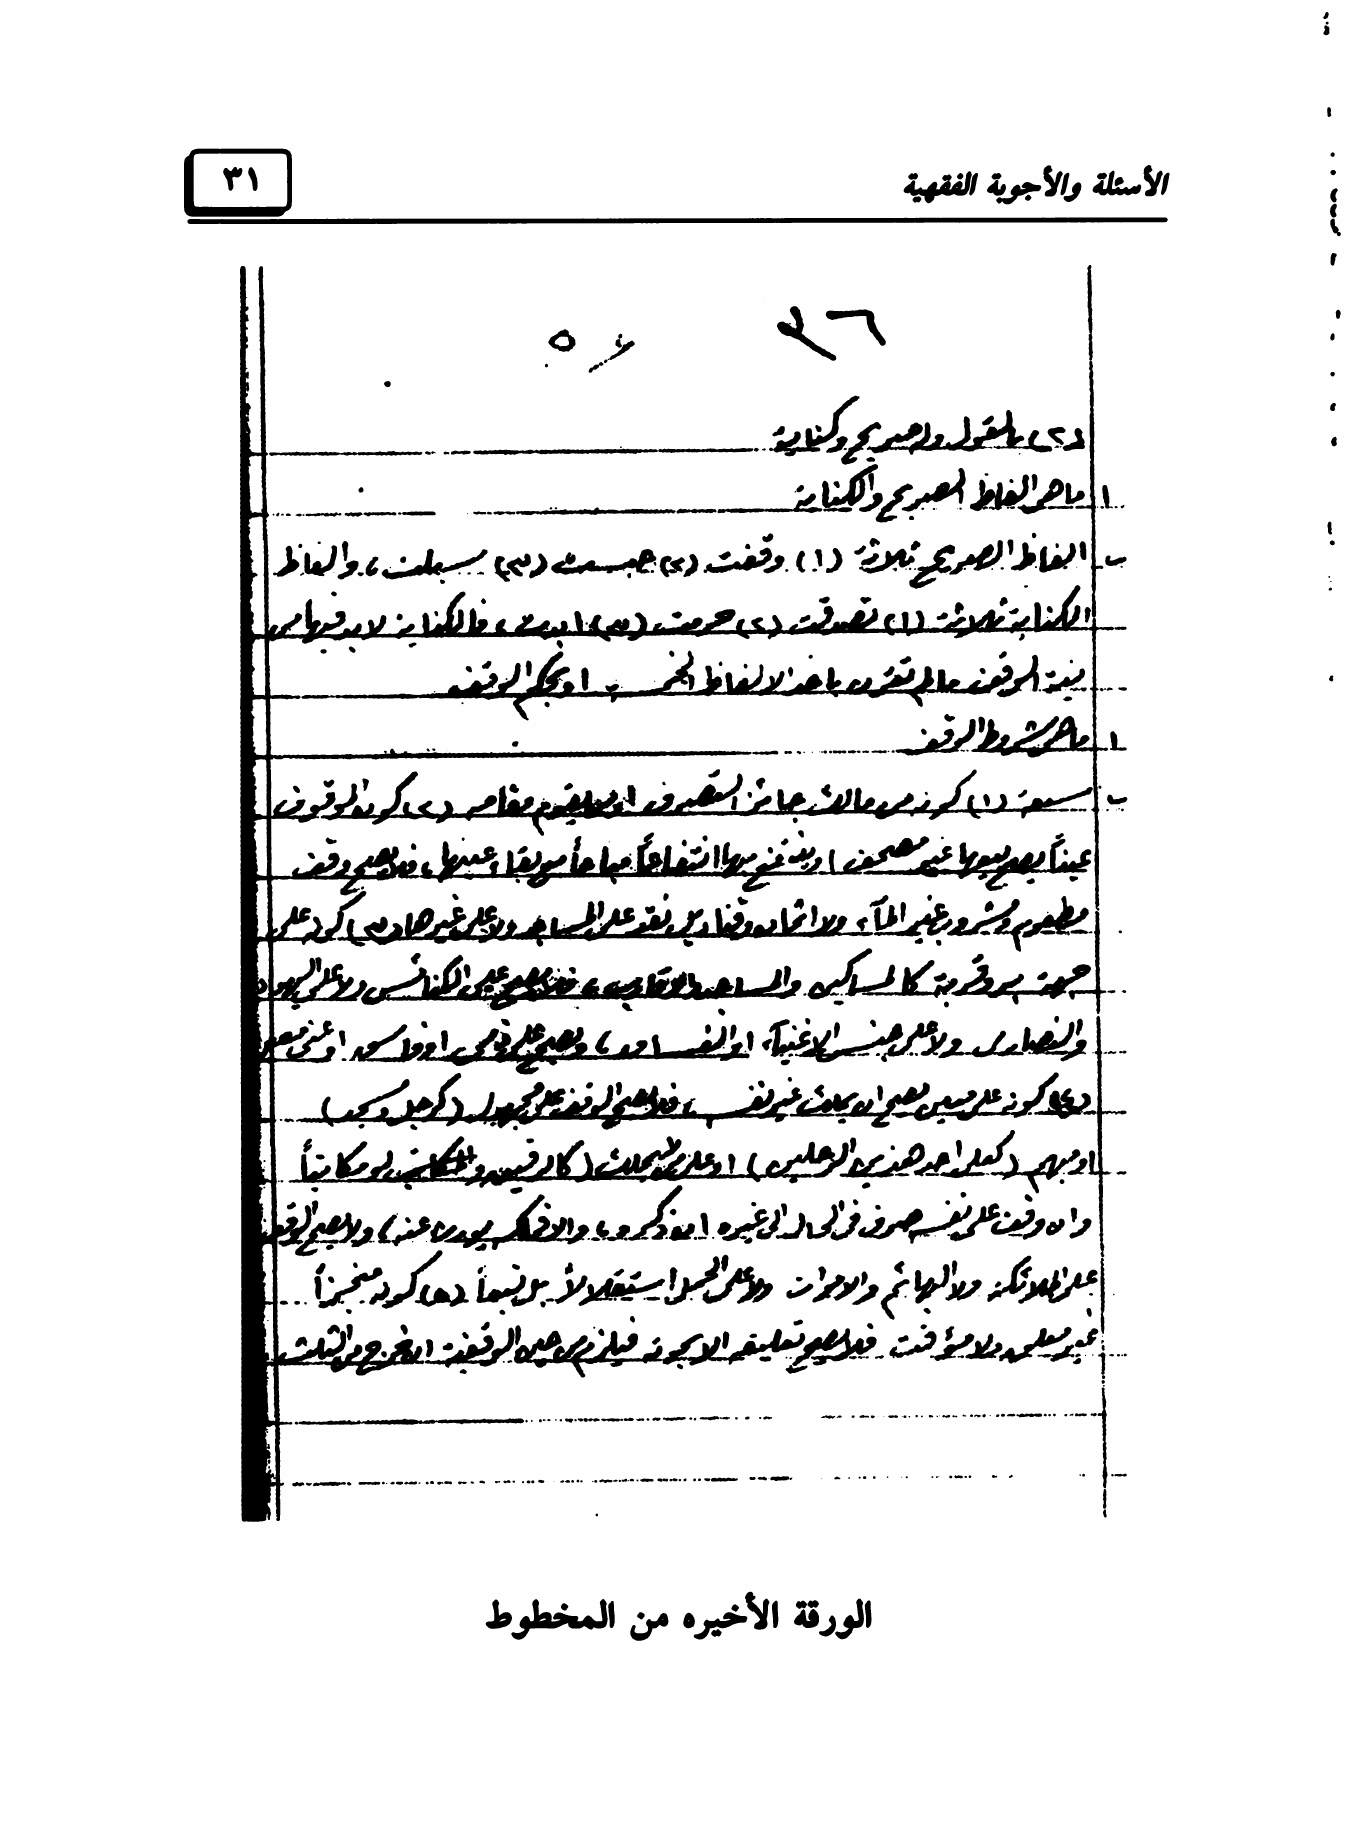 الأسئلة والأجوبة الفقهية
٣١
٣٦
(٢) بالقول وله صريح وكناية
ا ما هي الفاظ الصريح والكناية
ب الفاظ الصريح ثلاثة (١) وقفت (٢) حبست (٣) سبلت، والفاظ
الكناية ثلاثة (١) تصدقت (٢) حرمت (٣) ابدت، فالكناية لا بد فيها من
نية الوقف مالم تقترن باحد الالفاظ الخمسة او بحكم الوقف
ا ما هي شروط الوقف
ب سبعة (١) كونه من مالك جائز التصرف او من يقوم مقامه (٢) كون الموقوف
عيناً يصح بيعها غير مصحف) وينتفع بها انتفاعاً مباحاً مع بقاء عينها، فلا يصح وقف
مطعوم ومشروب غير المآء ولا اثمان وقناديل نقد على المساجد ولا على غيرها (٣) كونه على
جهة بر وقربة كالمساكين والمساجد والاقارب، فلا يصح على الكنائس ولا على اليهود
والنصارى ولا على جنس الاغنيآء او الفساق، ويصح على ذمي او فاسق او غني معين
(٤) كونه على معين يصح ان يملك غير نفسه، فلا يصح الوقف على مجهول (كرجل ومسجد)
او مبهم (كعلى احد هذين الرجلين) او على من لا يملك (كالرقيق ولو مكاتباً
وان وقف على نفسه صرف في الحال الى غيره ان ذكره، والا فملكه يورث عنه) ولا يصح الوقف
على الملائكة ولا البهائم والاموات ولا على الحمل استقلالاً بل تبعاً (٥) كونه منجزاً
غير معلق ولا مؤقت فلا يصح تعليقه الا بموته فيلزم من حين الوقفية ان خرج من الثلث
الورقة الأخيره من المخطوط